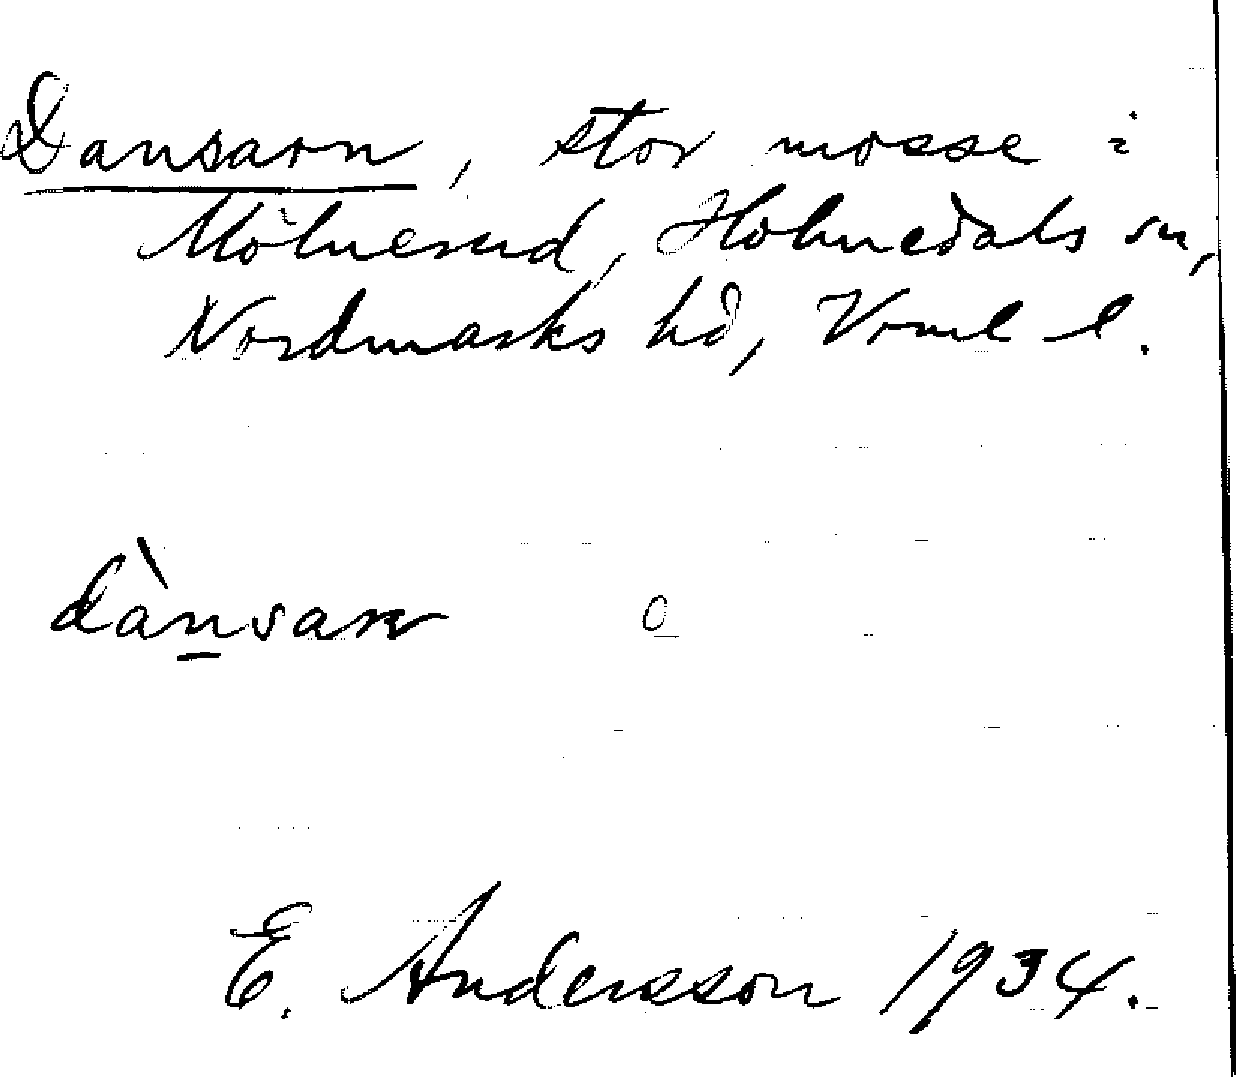 Dansarn, stor mosse i
Mölnerud, Holmedals sn,
Nordmarks hd, Vrml l.
dànsarn
E. Andersson 1934.